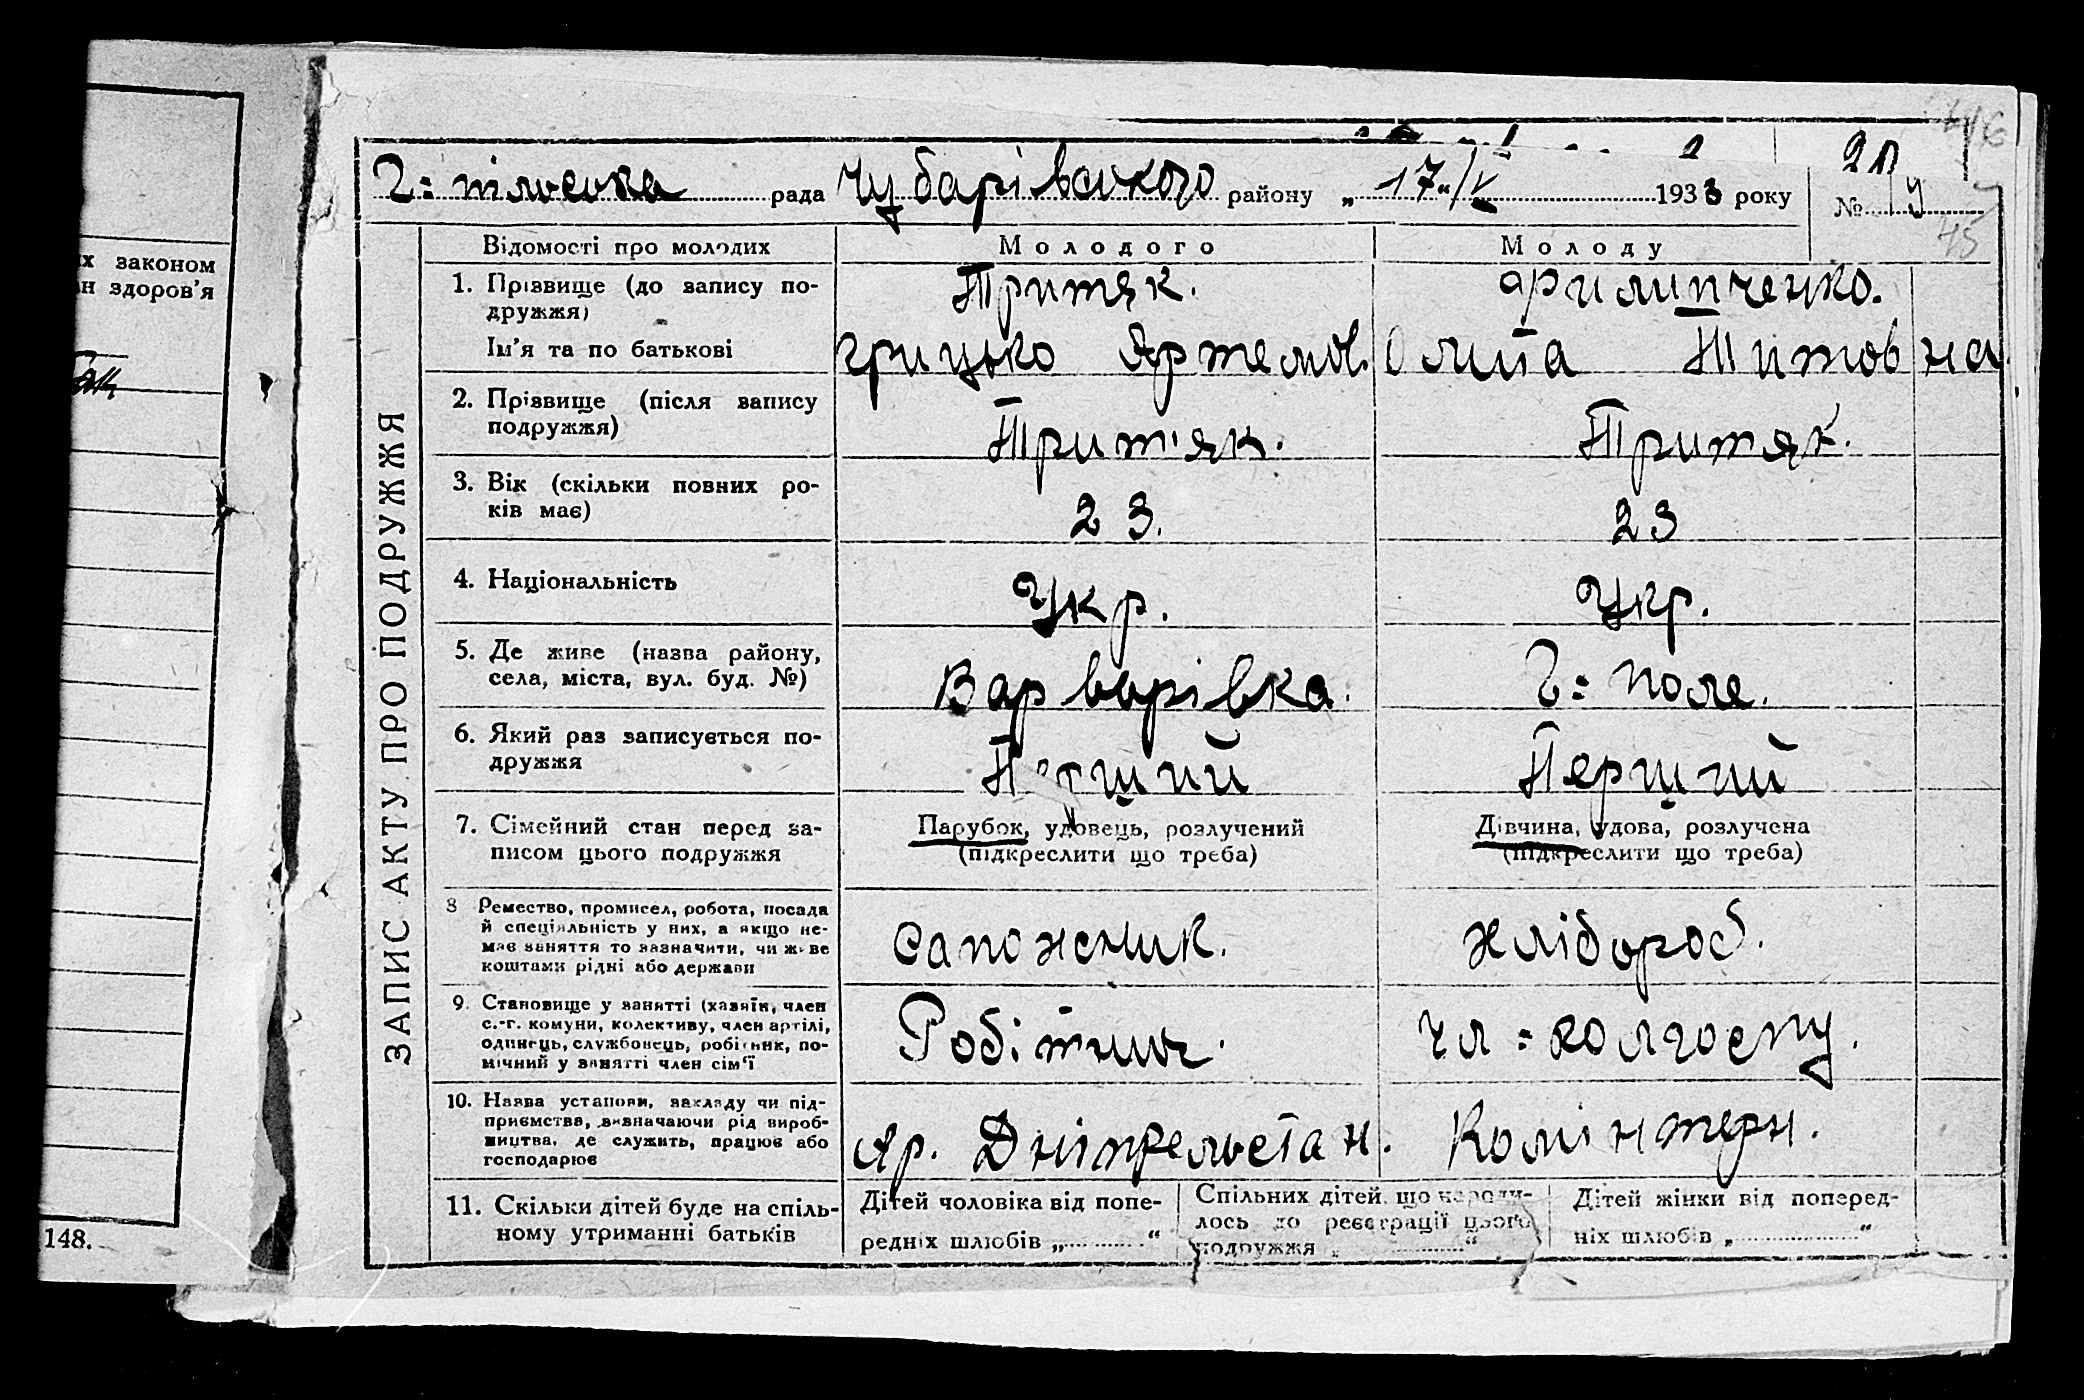 х законом
н здоров'я
148.
Г=пільська рада Чубарівського району „17“/V 1933 року
№ 9
75
ЗАПИС АКТУ ПРО ПОДРУЖЖЯ
Відомості про молодих Молодого Молоду
1. Прізвище (до запису по-
дружжя) Притяк. Филипченко.
Ім'я та по батькові Грицько Артемов. Олита Титовна
2. Прізвище (після запису
подружжя) Прит'як. Притяк.
3. Вік (скільки повних ро-
ків має) 23. 23
4. Національність Укр. Укр.
5. Де живе (назва району,
села, міста, вул. буд. №) Варварівка. Г=поле.
6. Який раз записується по-
дружжя Перший Перший
7. Сімейний стан перед за-
писом цього подружжя
Парубок, удовець, розлучений
(підкреслити що треба)
Дівчина, удова, розлучена
(підкреслити що треба)
8 Ремество, промисел, робота, посада
й спеціяльність у них, а якщо не-
має заняття то зазначити, чи живе
коштами рідні або держави
Сапожник. Хлібороб.
9. Становище у занятті (хазяїн, член
с.-г. комуни, колективу, член артілі,
одинець, службовець, робітник, по-
мічний у занятті член сім'ї
Робітник. чл=колгоспу.
10. Назва установи, закладу чи під-
приємства, визначаючи рід вироб-
ництва, де служить, працює або
господарює
Ар. Дніпрельстан. Комінтерн.
11. Скільки дітей буде на спіль-
ному утриманні батьків
Дітей чоловіка від попе-
редніх шлюбів „ “
Спільних дітей, що народи-
лось до реєстрації цього
подружжя „ “
Дітей жінки від поперед-
ніх шлюбів „ “